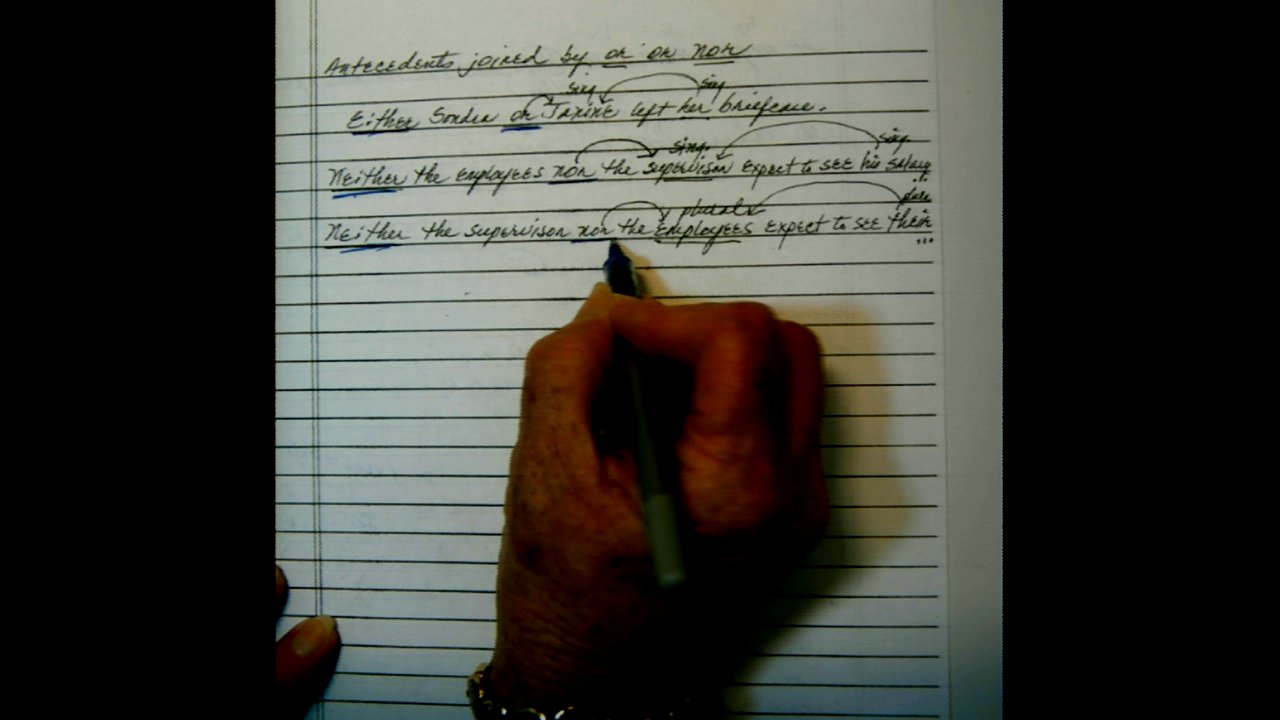 Antecedents joined by or or nor
sing sing
Either Sondra or Janine left her briefcase.
sing. sing.
Neither the employees nor the supervisor expect to see his salary
plural
Neither the supervisor nor the employees expect to see their